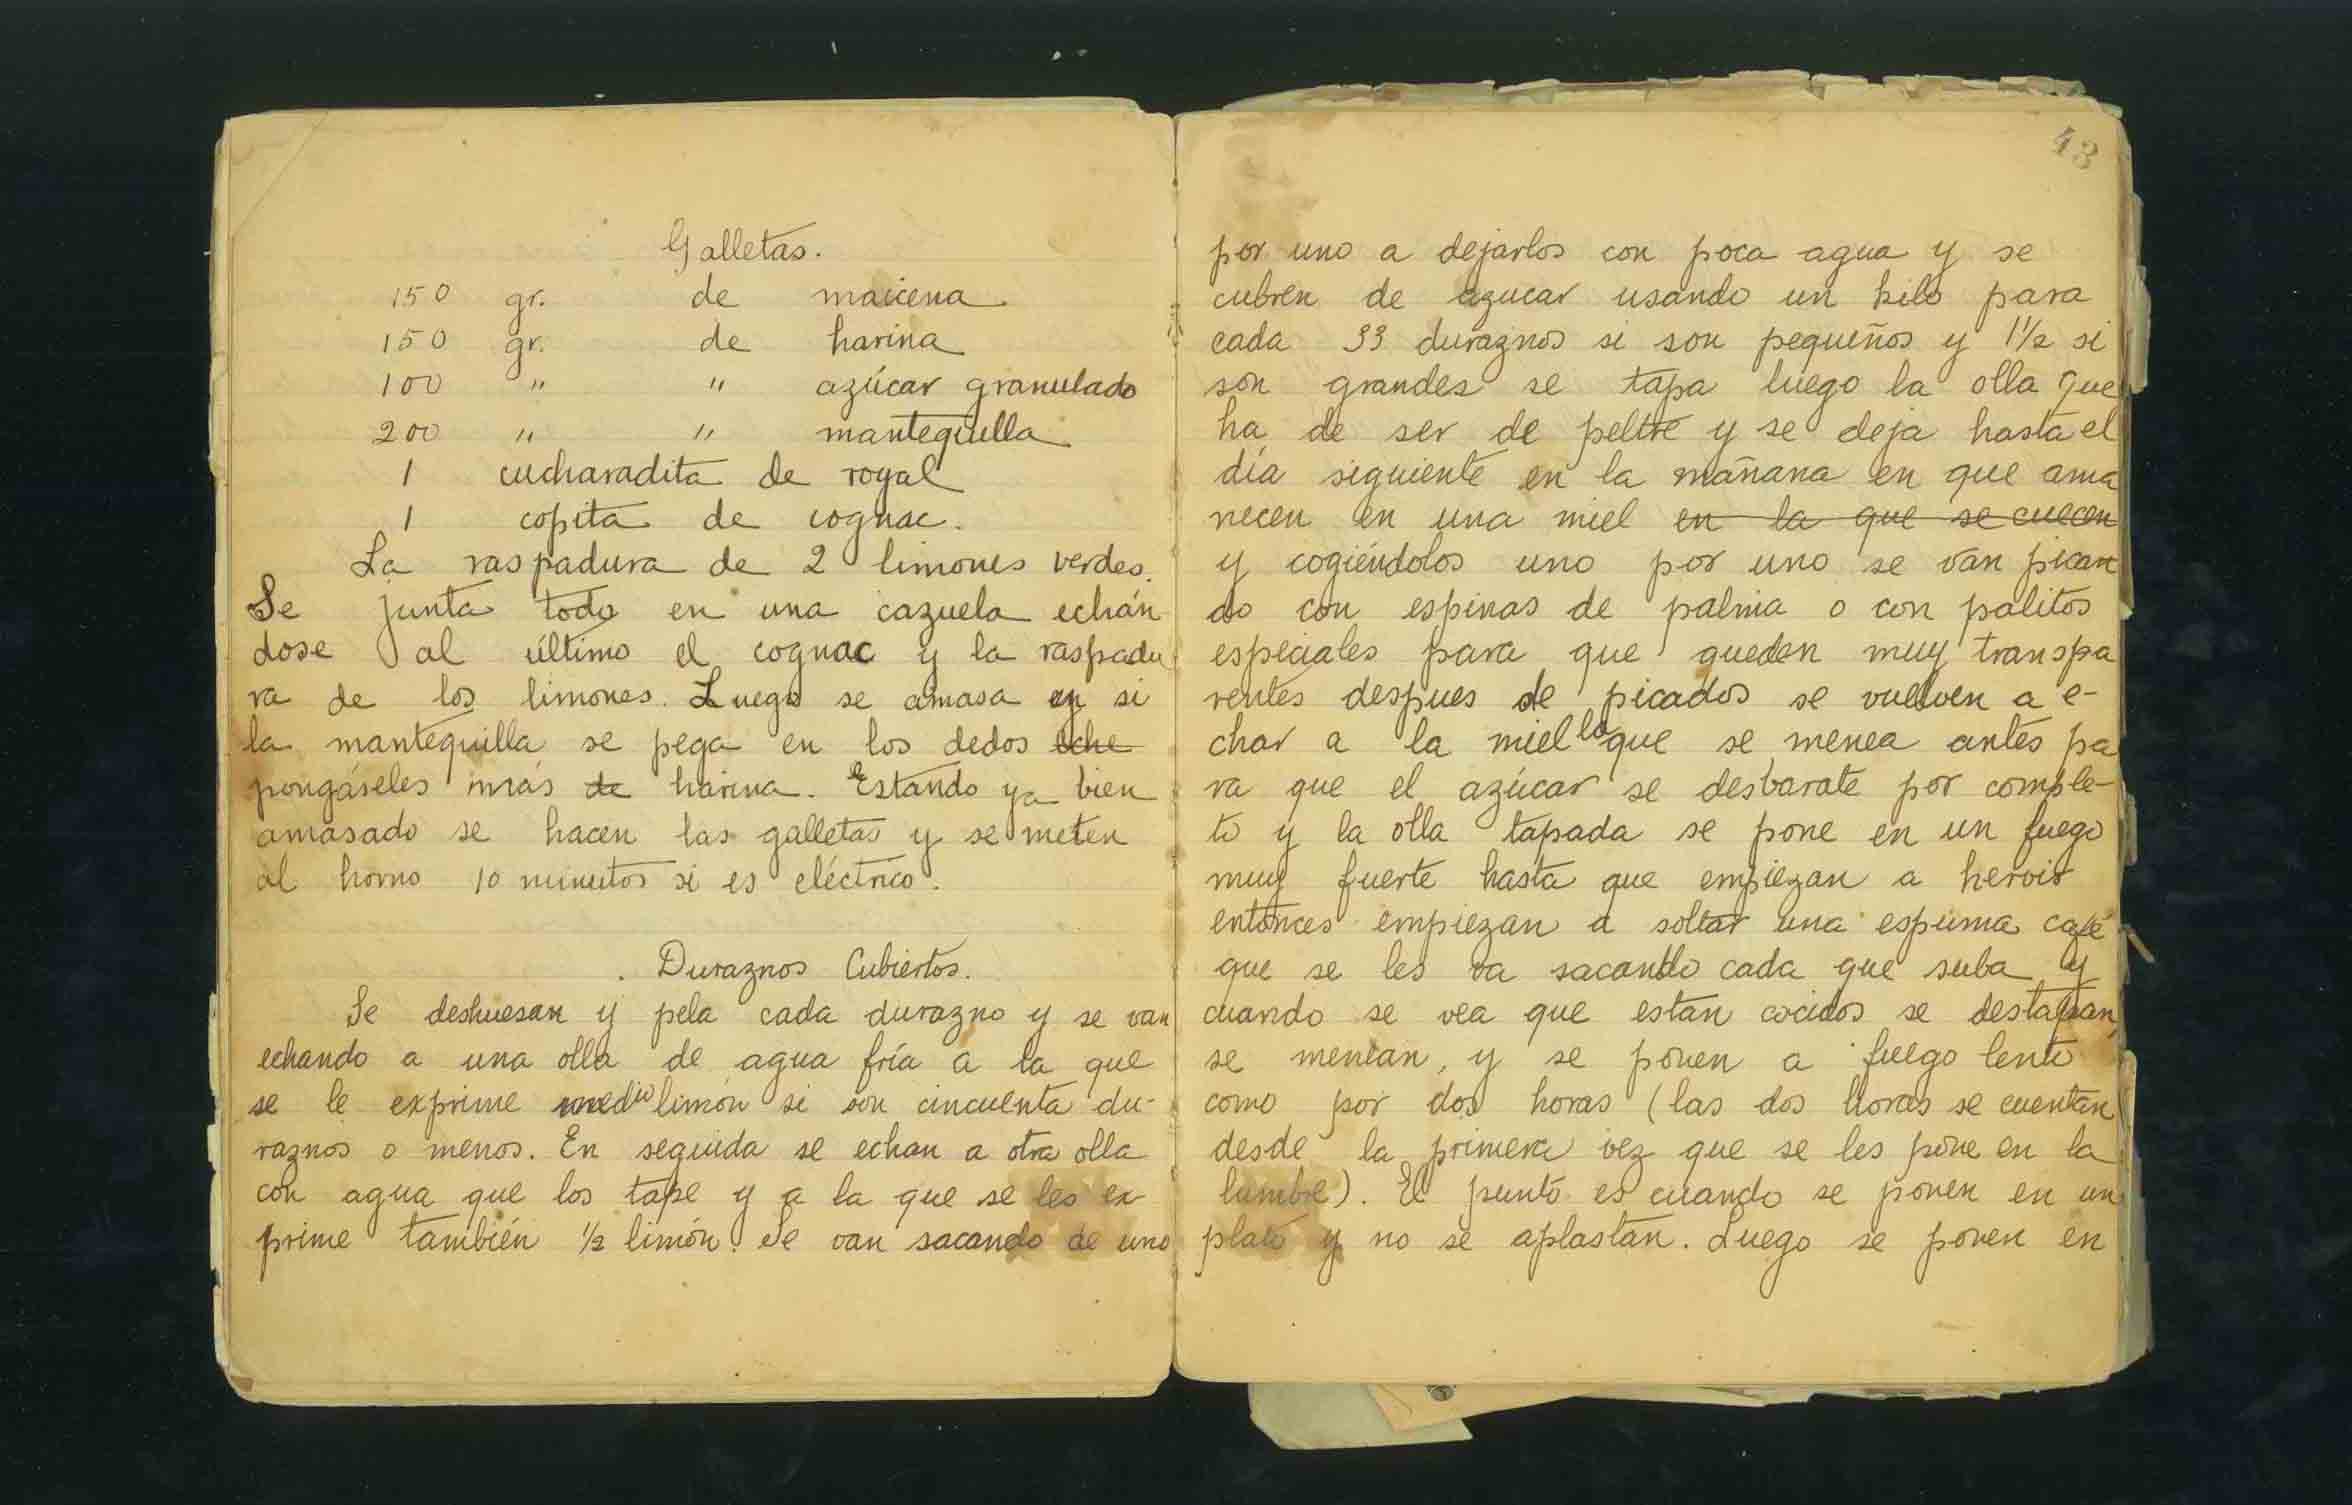 Galletas.
150 gr. de maicena
150 gr. de harina
100 " " azúcar granulado
200 " " mantequilla
1 cucharadita de royal
1 copita de cognac.
La raspadura de 2 limones verdes.
Se junta todo en una cazuela echán
dose al último el cognac y la raspadu
ra de los limones. Luego se amasa y si
la mantequilla se pega en los dedos eche
pongáseles más de harina. Estando ya bien
amasado se hacen las galletas y se meten
al horno 10 minutos si es eléctrico.
Duraznos Cubiertos.
Se deshuesan y pela cada durazno y se van
echando a una olla de agua fría a la que
se le exprime medio limón si son cincuenta du-
raznos o menos. En seguida se echan a otra olla
con agua que los tape y a la que se les ex-
prime también ½ limón. Se van sacando de uno
43
por uno a dejarlos con poca agua y se
cubren de azucar usando un kilo para
cada 33 duraznos si son pequeños y 1½ si
son grandes se tapa luego la olla que
ha de ser de peltre y se deja hasta el
día siguiente en la mañana en que ama
necen en una miel en la que se cuecen
y cogiéndolos uno por uno se van pican
do con espinas de palma o con palitos
especiales para que queden muy transpa
rentes despues de picados se vuelven a e-
char a la miel la que se menea antes pa
ra que el azúcar se desbarate por comple-
to y la olla tapada se pone en un fuego
muy fuerte hasta que empiezan a hervir
entonces empiezan a soltar una espuma café
que se les va sacando cada que suba y
cuando se vea que estan cocidos se destapan,
se menean, y se ponen a fuego lento
como por dos horas (las dos horas se cuentan
desde la primera vez que se les pone en la
lumbre). El punto es cuando se ponen en un
plato y no se aplastan. Luego se ponen en